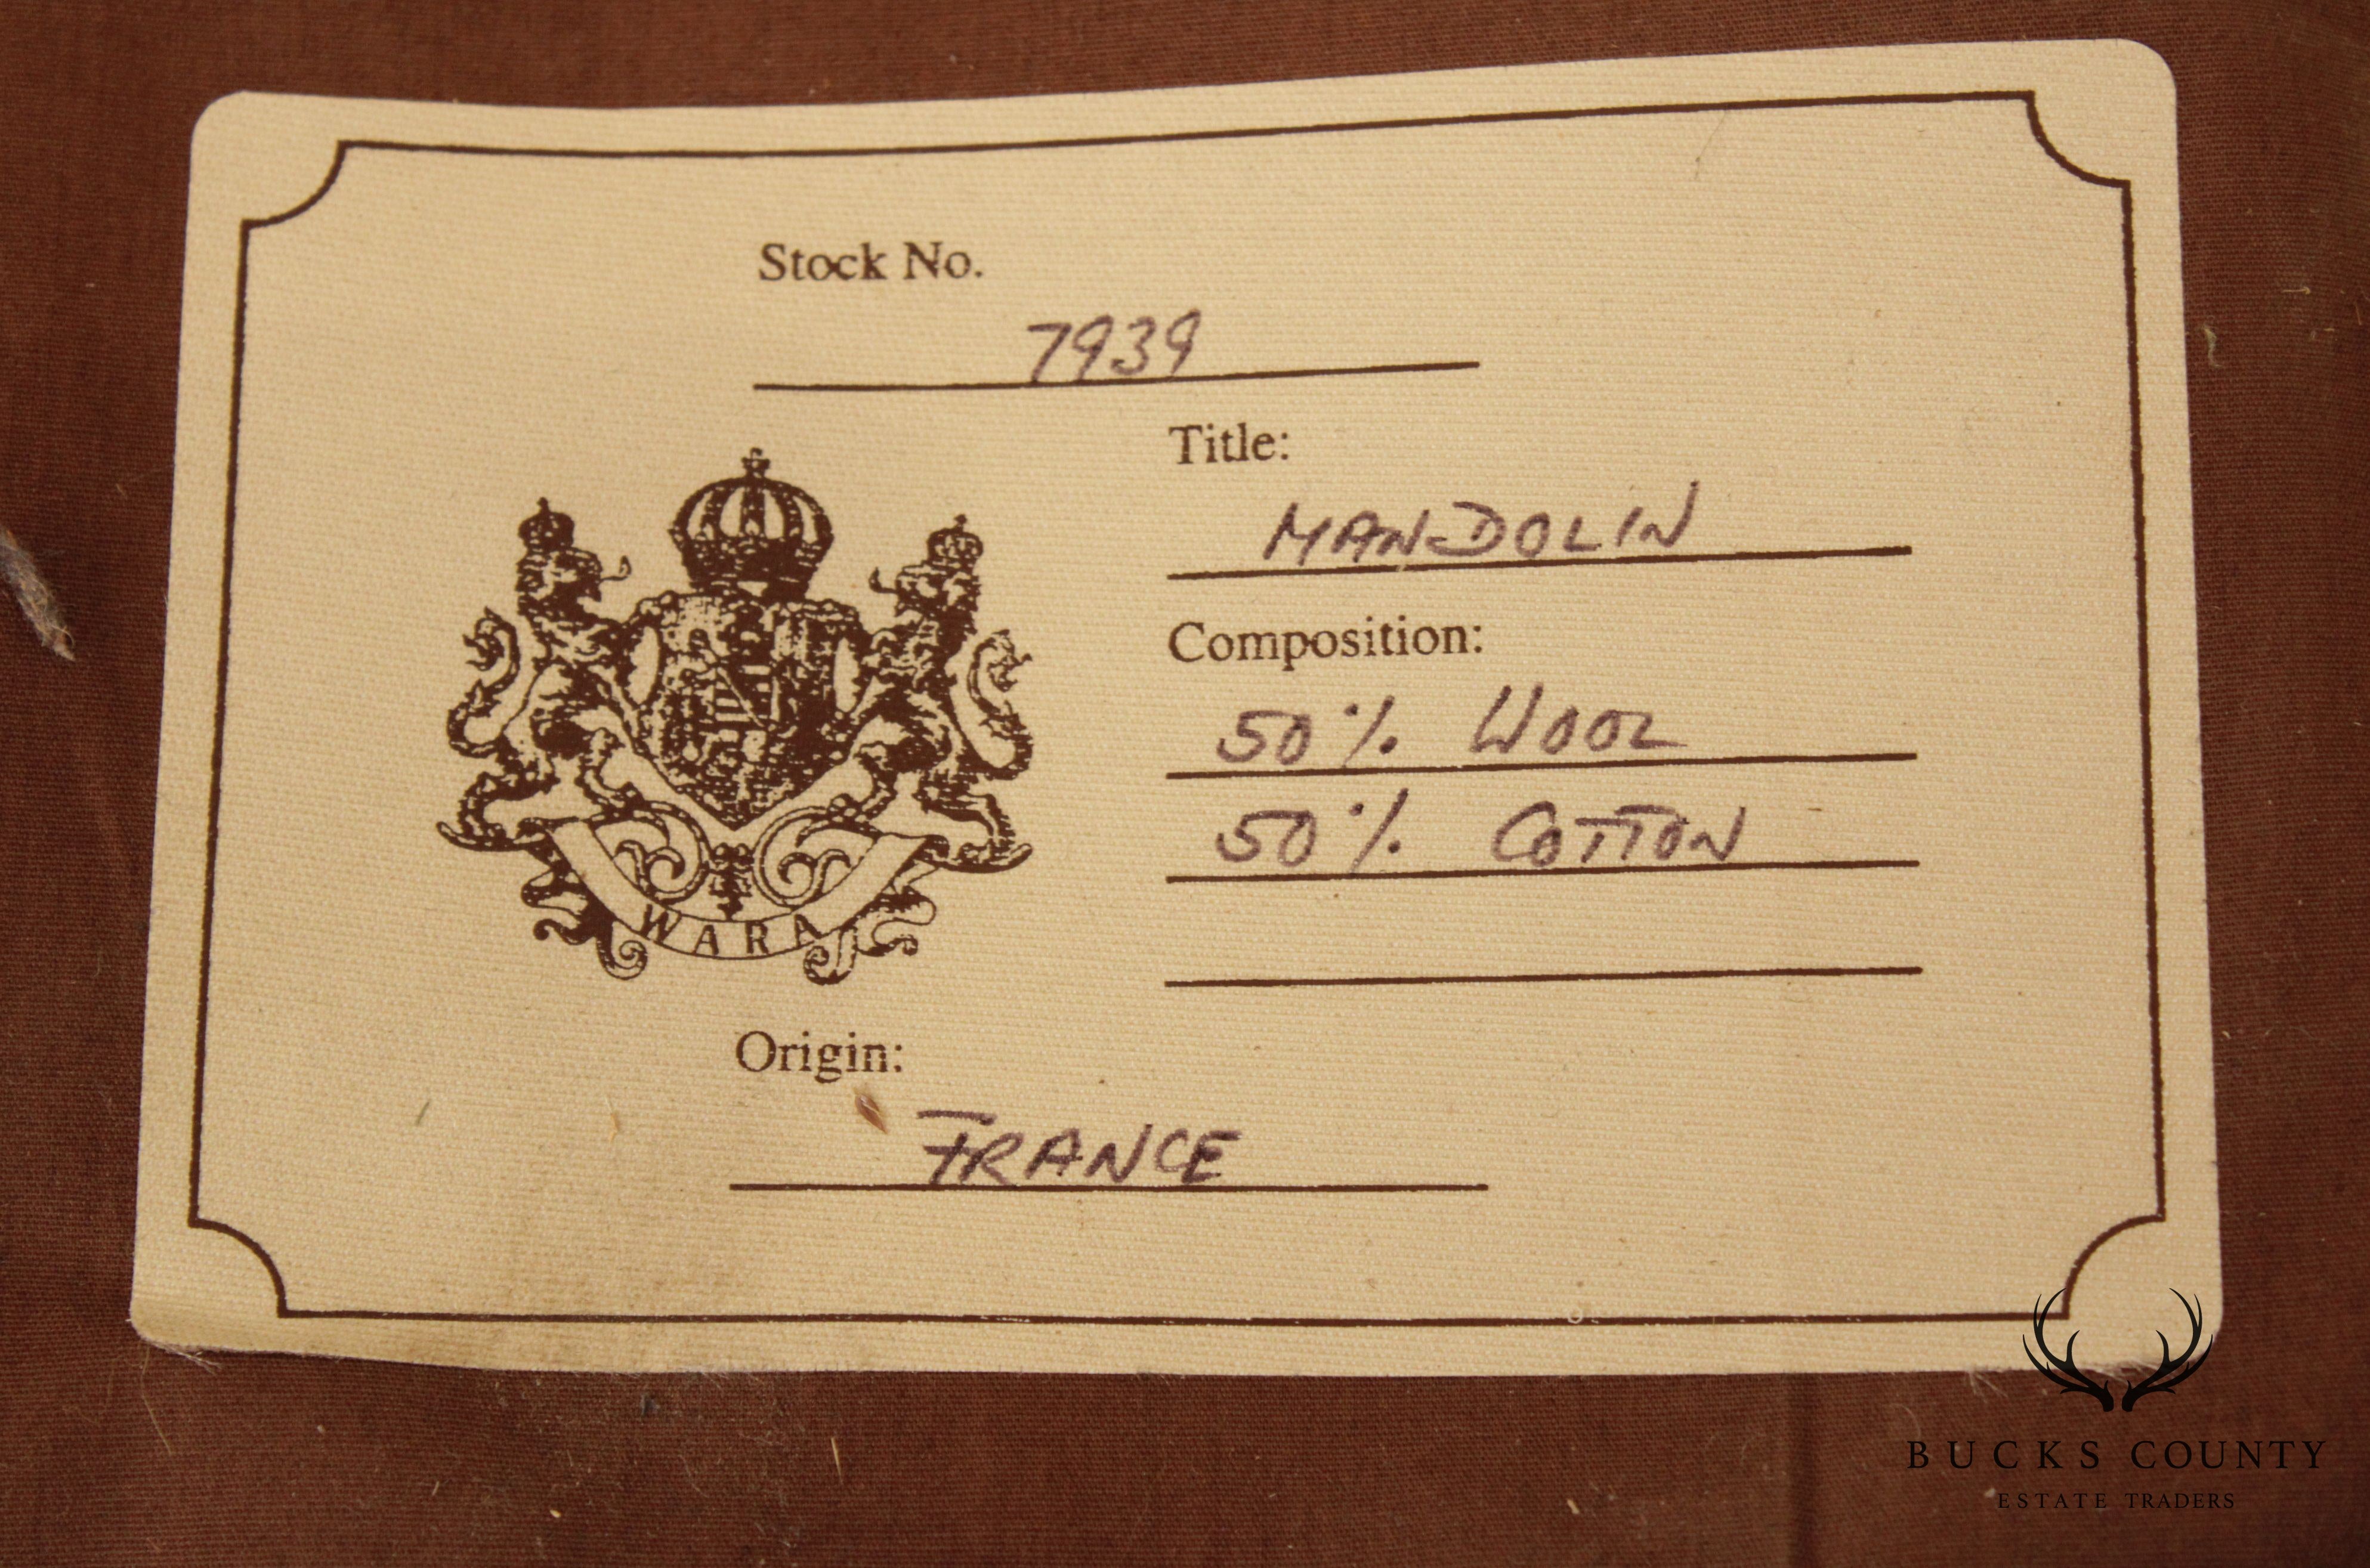 Stock No.
7939
Title:
MANDOLIN
Composition:
50% WOOL
50% COTTON
WARA
Origin:
FRANCE
BUCKS COUNTY
ESTATE TRADERS